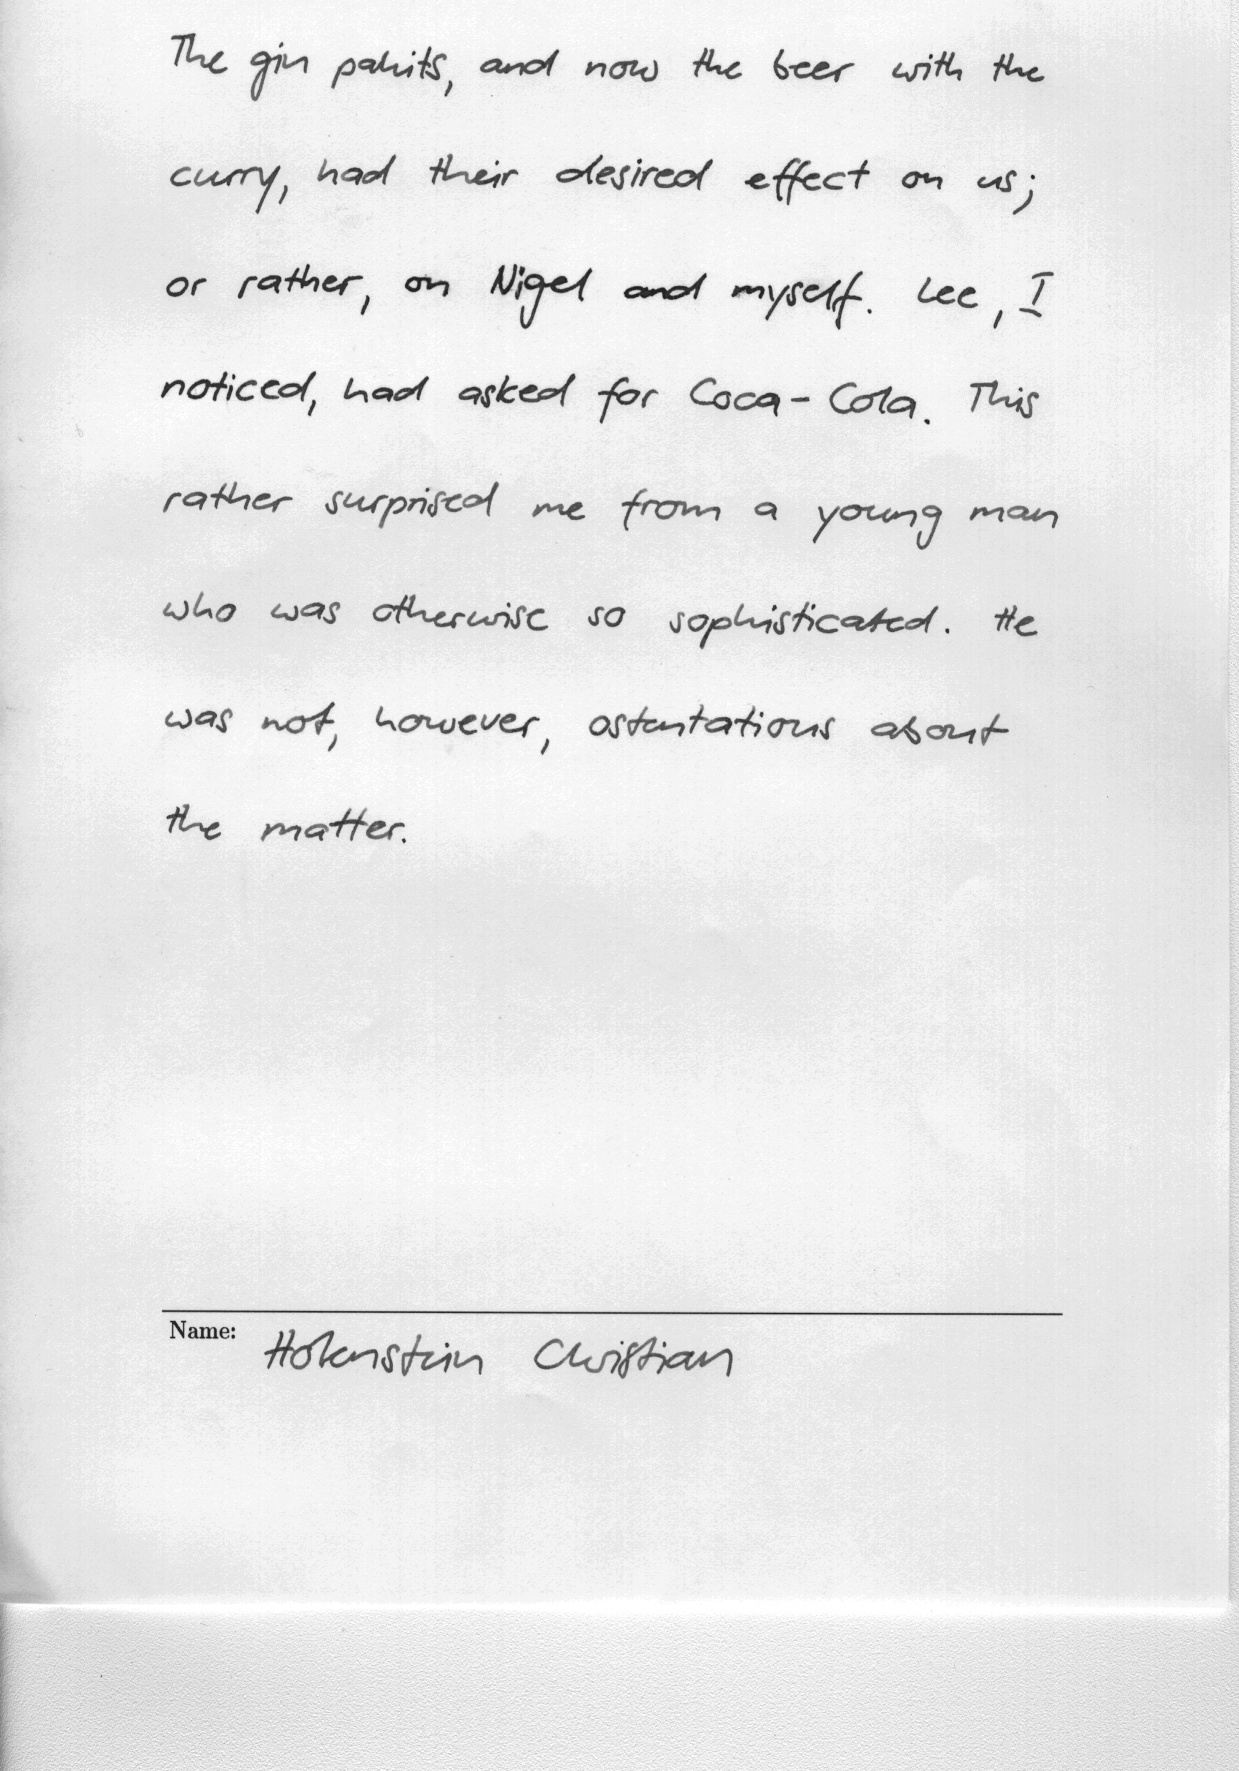 The gin pahits, and now the beer with the
curry, had their desired effect on us;
or rather, on Nigel and myself. Lee, I
noticed, had asked for Coca-Cola. This
rather surprised me from a young man
who was otherwise so sophisticated. He
was not, however, ostentatious about
the matter.
Name: Holenstein Christian